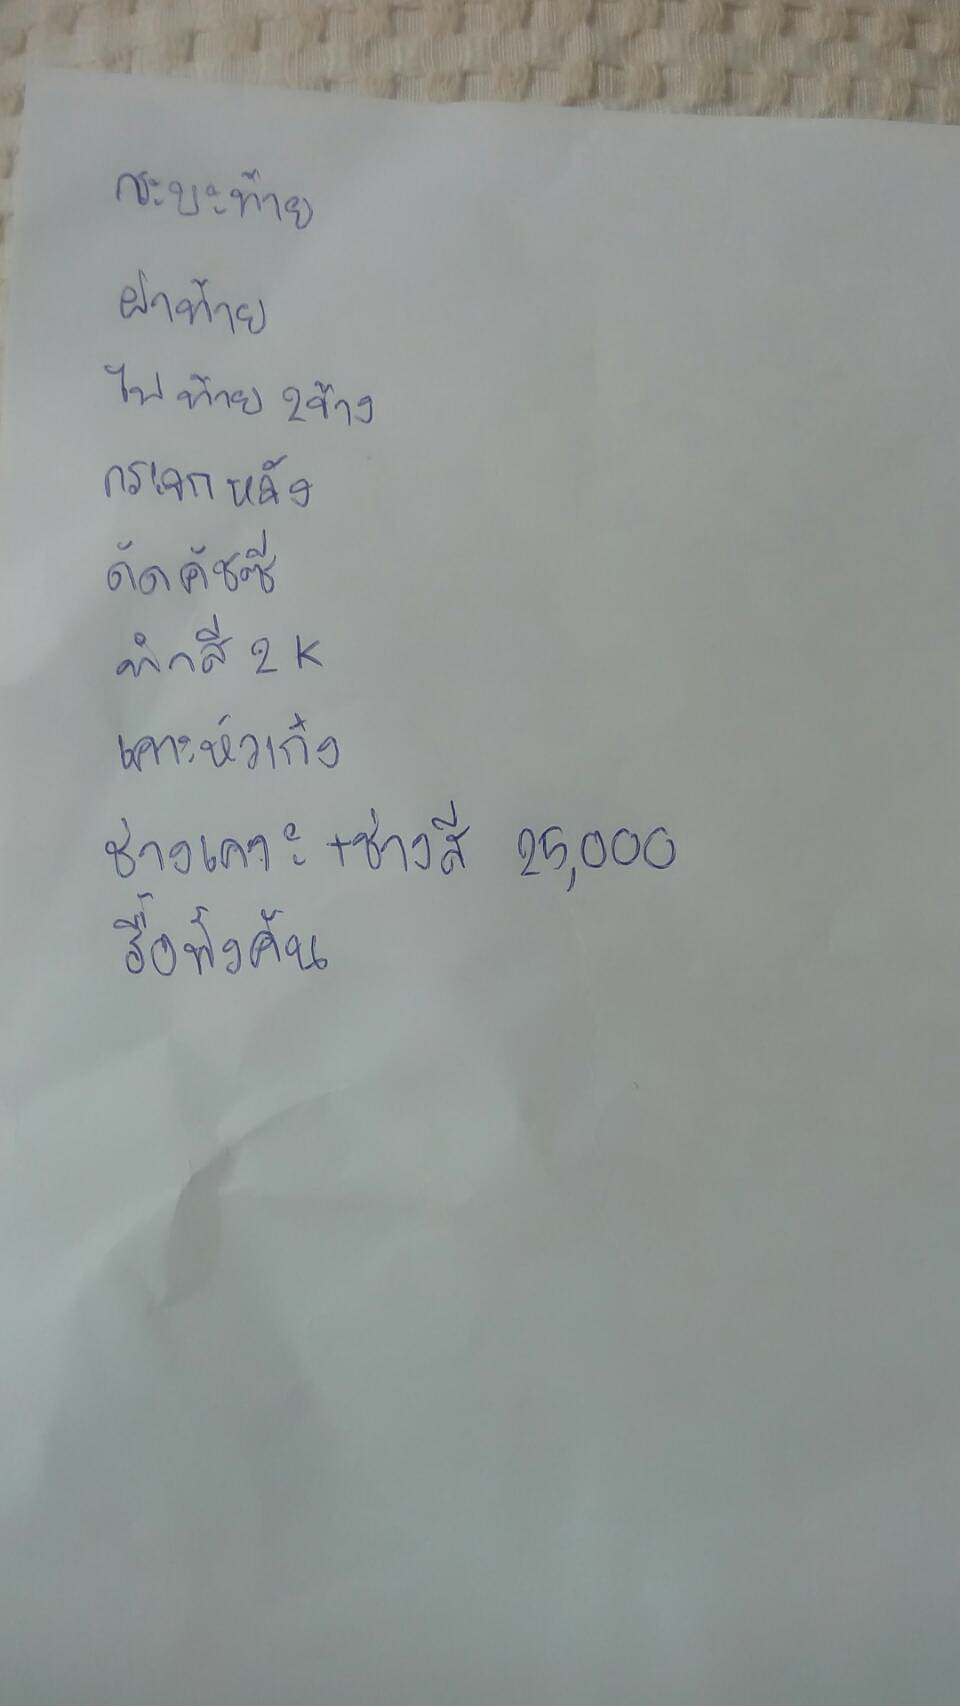 กระบะท้าย
ฝาท้าย
ไฟท้าย 2ข้าง
กระจกหลัง
ดัดคัชซี
พ่กสี 2K
เคาะหัวเก๋ง
ช่างเคาะ +ช่างสี 25,000
รื้อทั้งคัน